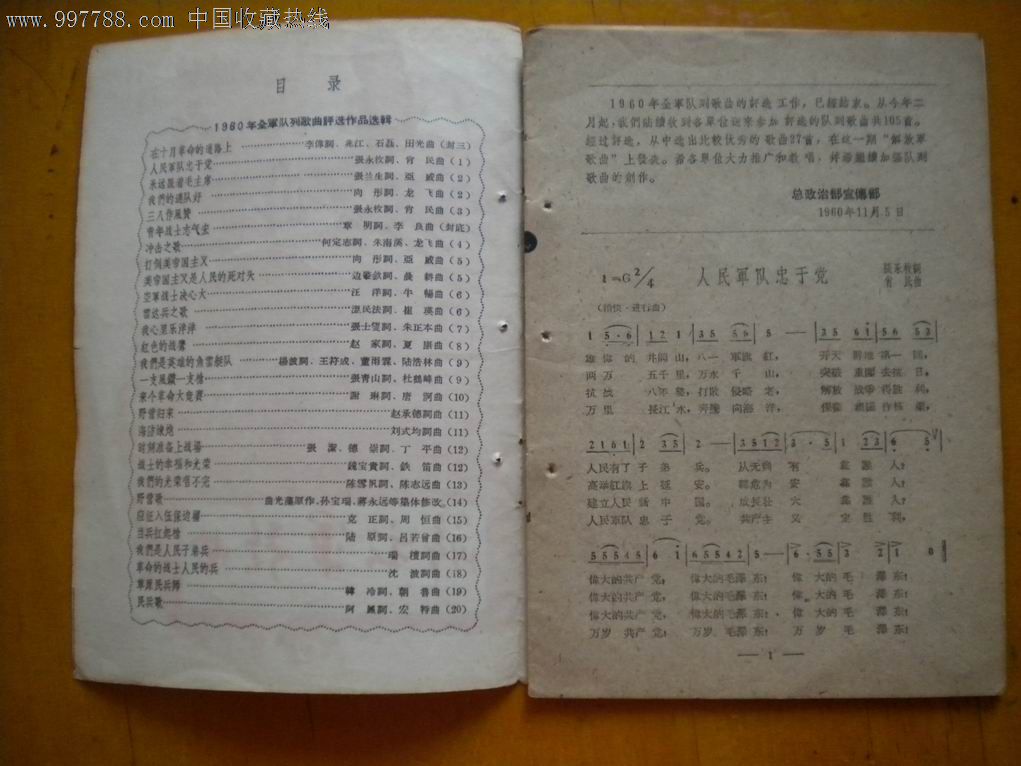 www.997788.com 中国收藏热线
目 录
1960年全軍队列歌曲評选作品选輯
在十月革命的道路上 李偉詞、兆江、石磊、田光曲(封三)
人民軍队忠于党 張永枚詞、肖 民曲(1)
永远跟着毛主席 張兰生詞、亞 威曲(2)
我們的連队好 向 彤詞、龙 飞曲(2)
三八作風贊 張永枚詞、肖 民曲(3)
青年战士志气宏 章 明詞、李 良曲(封底)
冲击之歌 何定志詞、朱南溪、龙飞曲(4)
打倒美帝国主义 向 彤詞、亞 威曲(5)
美帝国主义是人民的死对头 詞、晨 耕曲(5)
空軍战士决心大 汪 洋詞、牛 暢曲(6)
雷达兵之歌 民法詞、崔 瑛曲(6)
我心里乐洋洋 張士燮詞、朱正本曲(7)
紅色的战鷹 赵 家詞、夏 康曲(8)
我們是英雄的魚雷艇队 楊波詞、王符成、董雨霖、陆浩林曲(9)
一支風鑽一支槍 張青山詞、杜鶴峰曲(9)
来个革命大竞賽 謝 琳詞、唐 訶曲(10)
野营归来 赵承德詞曲(11)
海防炮 刘式均詞曲(11)
时刻准备上战場 張 潔、德 崇詞、丁 平曲(12)
战士的幸福和光荣 魏宝貴詞、鉄 笛曲(12)
我們的光荣唱不完 陈雪帆詞、陈志远曲(13)
野营歌 曲光藻原作,孙宝瑞、蔣永远等集体修改(14)
应征入伍保边疆 克 正詞、周 恒曲(15)
当兵扛起槍 陆 原詞、呂若曾曲(16)
我們是人民子弟兵 瑞 檟詞曲(17)
革命的战士人民的兵 沈 波詞曲(18)
草原民兵 韓 冷詞、朝 魯曲(19)
民兵歌 阿 鳳詞、宏 曲(20)
1960年全軍队列歌曲的評选工作,已經結束。从今年二
月起,我們陆續收到各单位送来参加 評选的队列歌曲共105首。
經过評选,从中选出比較优秀的 歌曲27首,在这一期“解放軍
歌曲”上發表。希各单位大力推广和教唱,幷希繼續加强队列
歌曲的創作。
总政治部宣傳部
1960年11月5日
1=G 2/4 人民軍队忠于党 張永枚詞
肖 民曲
(稍快·进行曲)
1 5·6 | 1 2 1 | 3 5 5 6 | 5 — | 3 5 6 i | 5 6 5 3 |
雄 偉 的 井岡 山, 八一 軍旗 紅, 开天 辟地 第一 回,
两 万 五千 里, 万水 千 山, 突破 重圍 去抗 日,
抗 战 八年 整, 打敗 侵略 者, 解放 战争 得胜 利,
万 里 长江 水, 奔騰 向海 洋, 保衞 祖国
2 1 6 1 | 2 3 5 | — | 3 5 1 2 | 3 · 5 | 1 2 3 | 6 5
人民有了 子 弟 兵。 从无到 有 靠 誰 人?
高举紅旗 上 延 安。 轉危为 安 靠 誰 人?
建立人民 新 中 国。 成长壮 大 靠 誰 人?
人民軍队 忠 于 党。 共产主 义 定 胜 利,
5 5 5 4 5 | 6 i | 5 6 5 4 2 | 5 — | 6· 5 5 | 3 2 | 1 0 ‖
偉大的共产 党, 偉大的毛澤 东! 偉 大的 毛 澤 东!
偉大的共产 党, 偉大的毛澤 东! 偉 大的 毛 澤 东!
偉大的共产 党, 偉大的毛澤 东! 偉 大的 毛 澤 东!
万岁 共产 党! 万岁 毛澤 东! 万 岁 毛 澤 东!
— 1 —